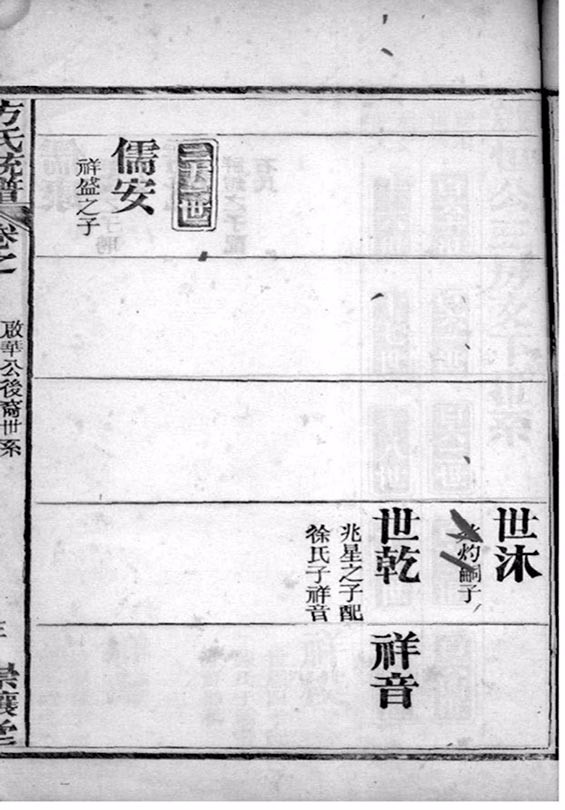 世沐
灼嗣子
世乾
兆星之子配
徐氏子祥音
祥音
儒安
祥盛之子
方氏統譜
卷之
啟華公後裔世系